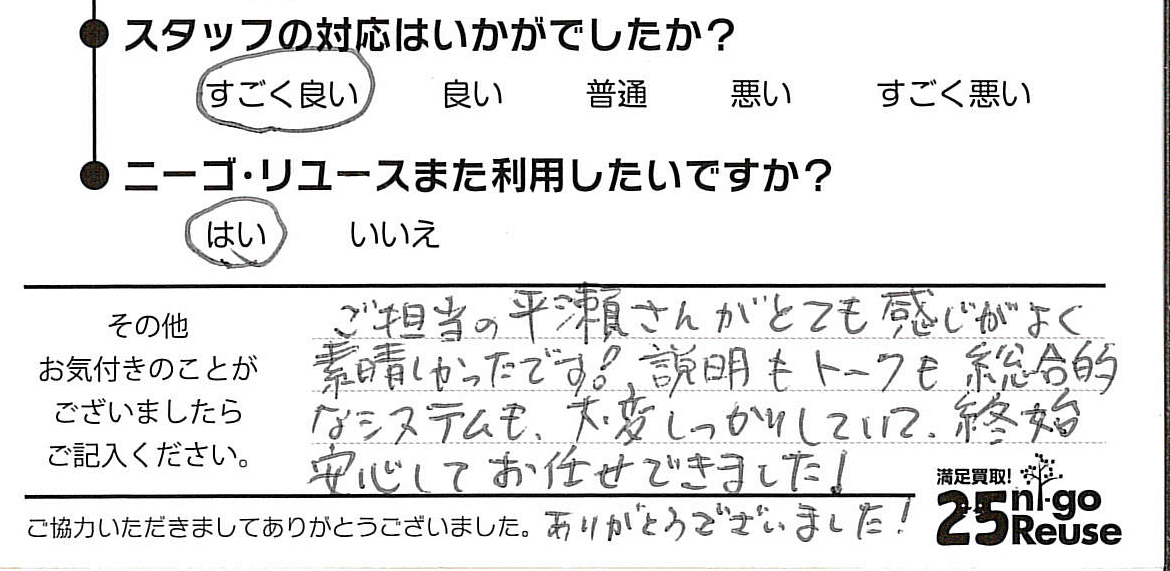 スタッフの対応はいかがでしたか？
すごく良い 良い 普通 悪い すごく悪い
ニーゴ・リユースまた利用したいですか？
はい いいえ
その他
お気付きのことが
ございましたら
ご記入ください。
ご担当の平瀬さんがとても感じがよく
素晴しかったです！説明もトークも総合的
なシステムも、大変しっかりしていて、終始
安心してお任せできました！
ご協力いただきましてありがとうございました。 ありがとうございました！
満足買取！
25 ni-go
Reuse